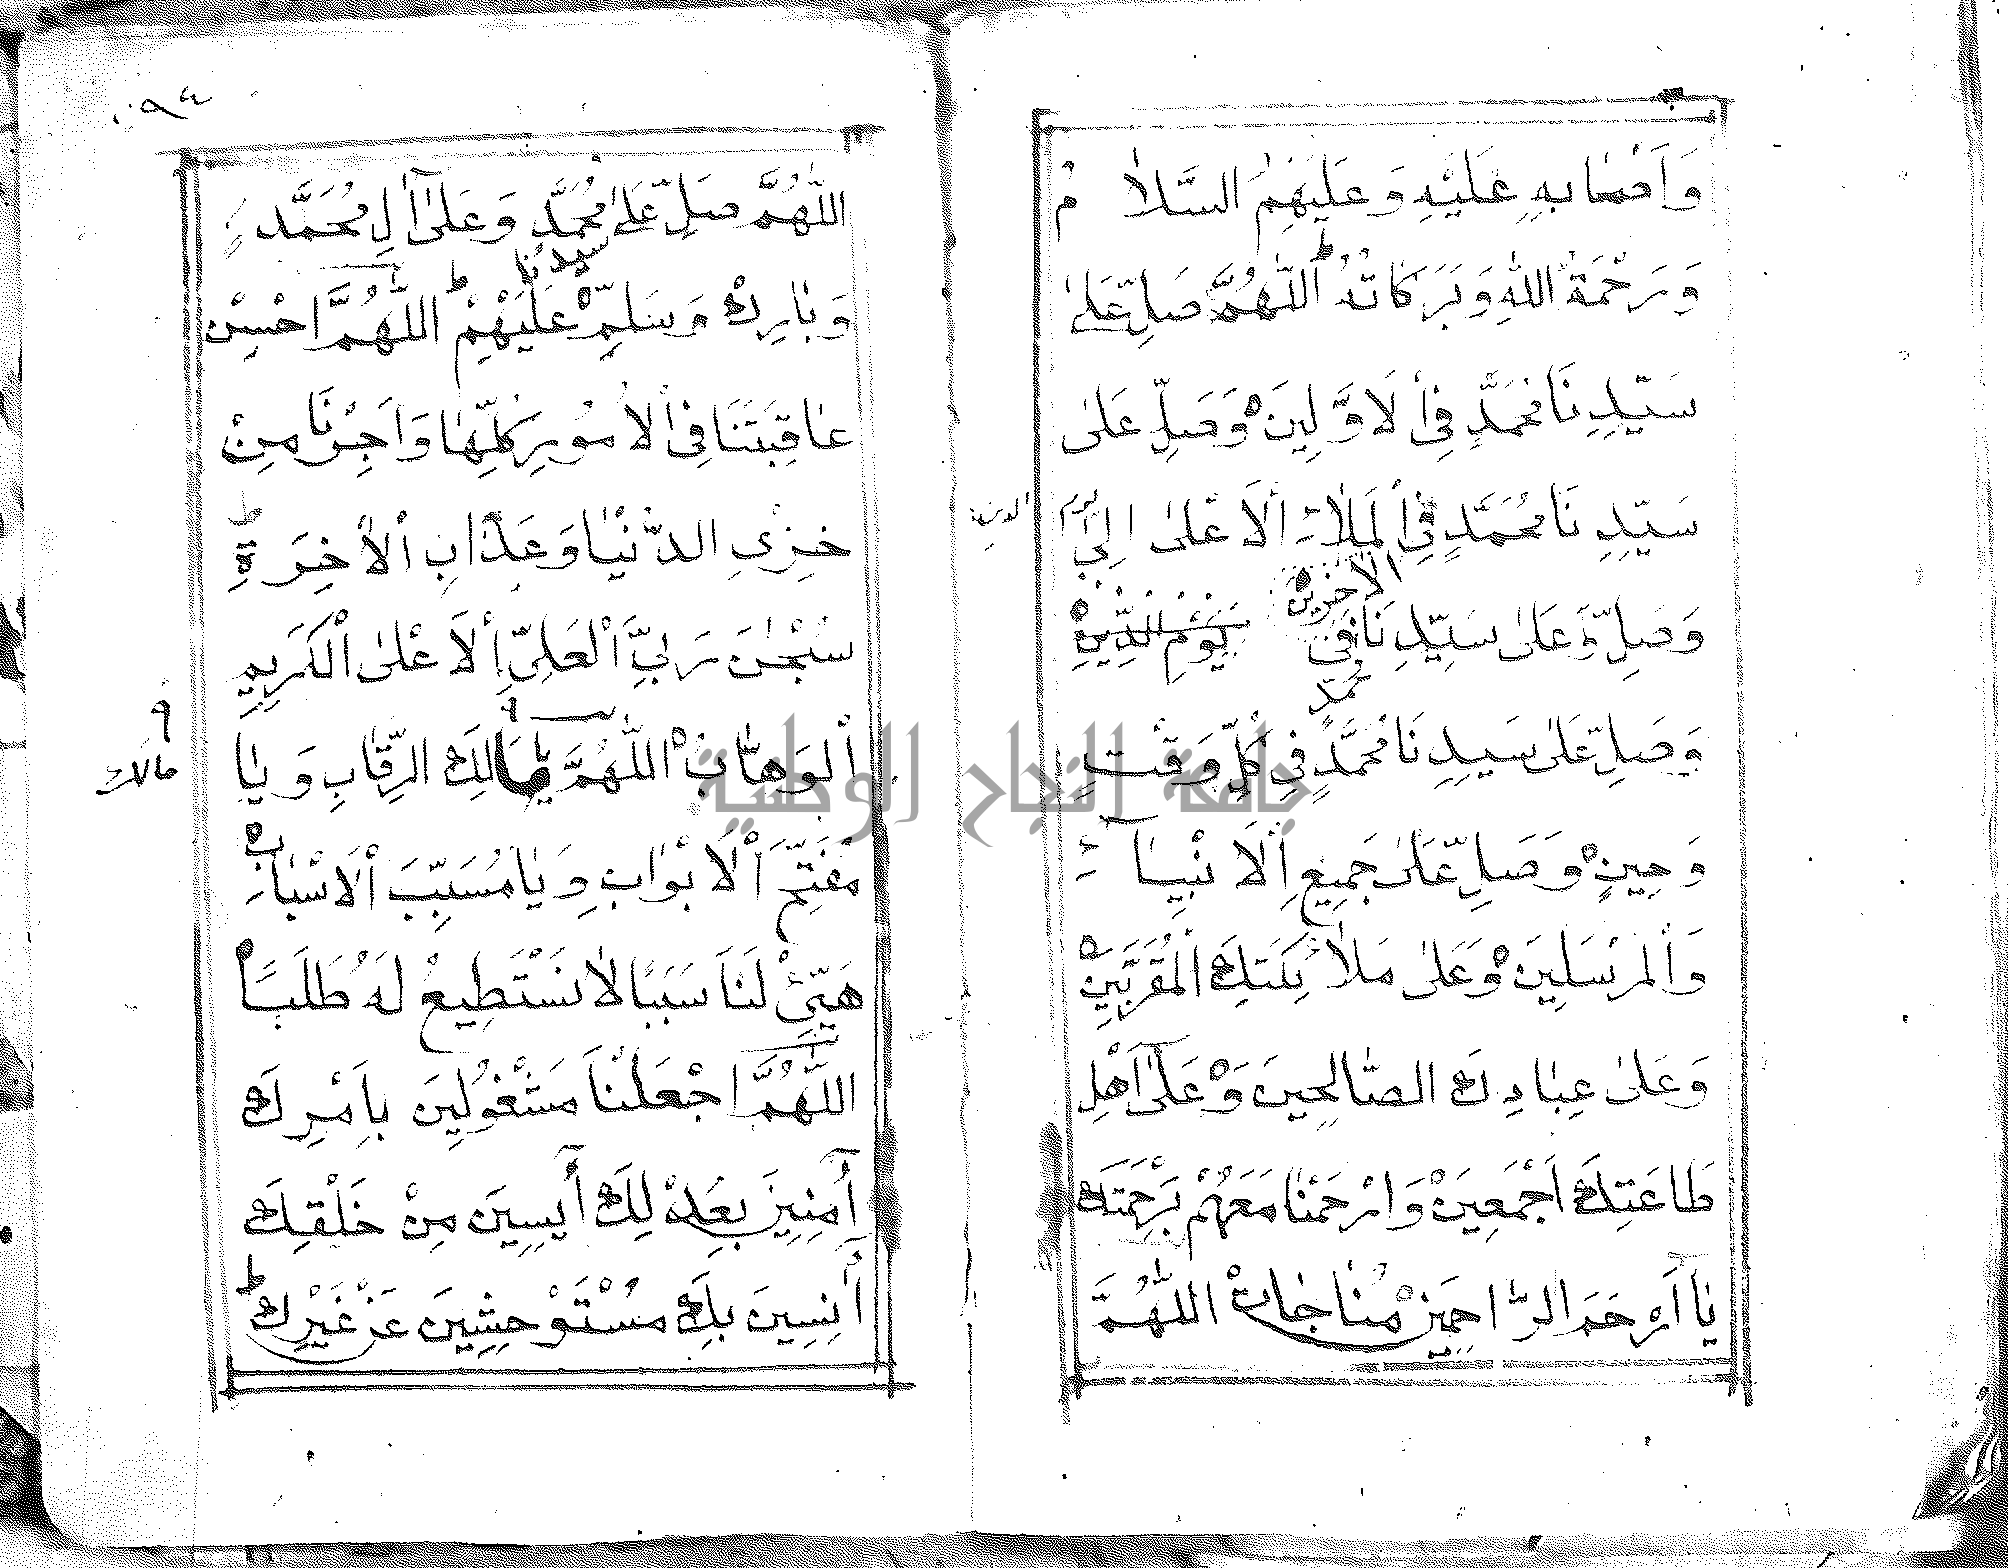 وَاَصْحَابِهِ عَلَيْهِ وَعَلَيْهِمُ السَّلَامُ
وَرَحْمَةُ اللهِ وَبَرَكَاتُهُ ط اَللّٰهُمَّ صَلِّ عَلىٰ
سَيِّدِنَا مُحَمَّدٍ فِى اْلاَوَّلِينَ وَصَلِّ عَلىٰ
سَيِّدِنَا مُحَمَّدٍ فِى اْلمَلَاءِ اْلاَعْلىٰ اِلىٰ يوم
الدين
الآخرين
وَصَلِّ عَلىٰ سَيِّدِنَا فِى يَوْمِ الدِّينِ
محمد
وَصَلِّ عَلىٰ سَيِّدِنَا مُحَمَّدٍ فِى كُلِّ وَقْتٍ
وَحِينٍ وَصَلِّ عَلىٰ جَمِيعِ اْلاَنْبِيَآءِ
وَاْلمُرْسَلِينَ وَعَلىٰ مَلَائِكَتِكَ اْلمُقَرَّبِينَ
وَعَلىٰ عِبَادِكَ الصَّالِحِينَ وَعَلىٰ اَهْلِ
طَاعَتِكَ اَجْمَعِينَ وَارْحَمْنَا مَعَهُمْ بِرَحْمَتِكَ
يَا اَرْحَمَ الرَّاحِمِينَ مُنَاجَات اَللّٰهُمَّ
٠٩٤
اللّٰهُمَّ صَلِّ عَلىٰ مُحَمَّدٍ وَعَلىٰ اٰلِ مُحَمَّدٍ
سيدنا
وَبَارِكْ وَسَلِّمْ عَلَيْهِمْ ط اَللّٰهُمَّ اَحْسِنْ
عَاقِبَتَنَا فِى اْلاُمُورِ كُلِّهَا وَاَجِرْنَا مِنْ
خِزْىِ الدُّنْيَا وَعَذَابِ اْلاٰخِرَةِ ط
سُبْحٰنَ رَبِّىَ اْلعَلِىِّ اْلاَعْلىٰ اْلكَرِيمِ
اْلوَهَّابِ اَللّٰهُمَّ يَا مَالِكَ الرِّقَابِ وَيَا
مالك
مُفَتِّحَ اْلاَبْوَابِ وَيَا مُسَبِّبَ اْلاَسْبَابِ
هَيِّئْ لَنَا سَبَبًا لَا نَسْتَطِيعُ لَهُ طَلَبًا
اَللّٰهُمَّ اجْعَلْنَا مَشْغُولِينَ بِاَمْرِكَ
اٰمِنِينَ بِعَدْلِكَ اٰيِسِينَ مِنْ خَلْقِكَ
اٰنِسِينَ بِكَ مُسْتَوْحِشِينَ عَنْ غَيْرِكَ ط
جامعة النجاح الوطنية